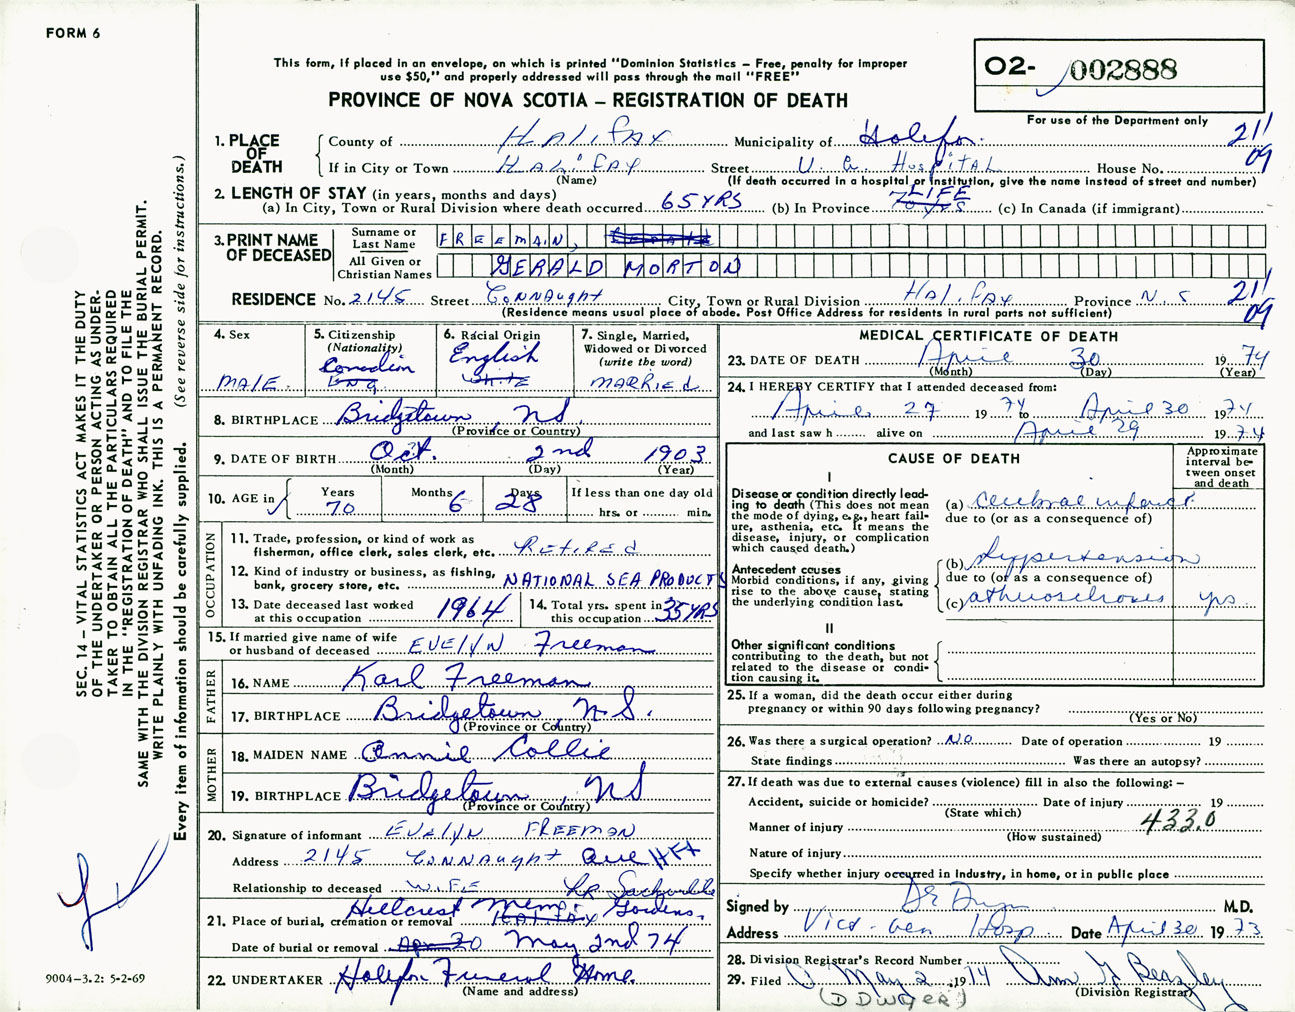 FORM 6
This form, if placed in an envelope, on which is printed "Dominion Statistics – Free, penalty for improper
use $50," and properly addressed will pass through the mail "FREE"
PROVINCE OF NOVA SCOTIA – REGISTRATION OF DEATH
O2- 002888
For use of the Department only
1. PLACE OF DEATH
County of HALIFAX Municipality of Halifax 211
If in City or Town HALIFAX Street V. G. HOSPITAL House No. 09
(Name) (If death occurred in a hospital or institution, give the name instead of street and number)
2. LENGTH OF STAY (in years, months and days)
(a) In City, Town or Rural Division where death occurred 65 YRS (b) In Province 70 yrs LIFE (c) In Canada (if immigrant)
3. PRINT NAME OF DECEASED
Surname or Last Name FREEMAN,
All Given or Christian Names GERALD MORTON
RESIDENCE No. 2145 Street CONNAUGHT City, Town or Rural Division HALIFAX Province N.S 211
(Residence means usual place of abode. Post Office Address for residents in rural parts not sufficient) 09
4. Sex MALE
5. Citizenship (Nationality) Canadian ENG
6. Racial Origin English White
7. Single, Married, Widowed or Divorced (write the word) MARRIED
8. BIRTHPLACE Bridgetown, NS.
(Province or Country)
9. DATE OF BIRTH Oct. 2nd 1903
(Month) (Day) (Year)
10. AGE in Years 70 Months 6 Days 28 If less than one day old hrs. or min.
OCCUPATION
11. Trade, profession, or kind of work as fisherman, office clerk, sales clerk, etc. RETIRED
12. Kind of industry or business, as fishing, bank, grocery store, etc. NATIONAL SEA PRODUCTS
13. Date deceased last worked at this occupation 1964
14. Total yrs. spent in this occupation 35 YRS
15. If married give name of wife or husband of deceased EVElYN Freeman
FATHER
16. NAME Karl Freeman
17. BIRTHPLACE Bridgetown, N.S.
(Province or Country)
MOTHER
18. MAIDEN NAME Annie Collie
19. BIRTHPLACE Bridgetown, NS
(Province or Country)
20. Signature of informant EVElYN FREEMAN
Address 2145 CONNAUGHT Ave HFX
Relationship to deceased WIFE Lr Sackville
21. Place of burial, cremation or removal Hillcrest Mem. Gardens. HALIFAX
Date of burial or removal Apr 30 May 2nd 74
22. UNDERTAKER Halifax Funeral Home.
(Name and address)
MEDICAL CERTIFICATE OF DEATH
23. DATE OF DEATH April 30 1974
(Month) (Day) (Year)
24. I HEREBY CERTIFY that I attended deceased from:
April 27 1974 to April 30 1974
and last saw h alive on April 29 1974
CAUSE OF DEATH
Approximate interval between onset and death
I
Disease or condition directly leading to death (This does not mean the mode of dying, e.g., heart failure, asthenia, etc. It means the disease, injury, or complication which caused death.)
(a) cerebral infarct
due to (or as a consequence of)
Antecedent causes
Morbid conditions, if any, giving rise to the above cause, stating the underlying condition last.
(b) Hypertension
due to (or as a consequence of)
(c) atherosclerosis yrs
II
Other significant conditions
contributing to the death, but not related to the disease or condition causing it.
25. If a woman, did the death occur either during
pregnancy or within 90 days following pregnancy?
(Yes or No)
26. Was there a surgical operation? NO Date of operation 19
State findings Was there an autopsy?
27. If death was due to external causes (violence) fill in also the following: –
Accident, suicide or homicide? Date of injury 19
(State which)
Manner of injury 433.0
(How sustained)
Nature of injury
Specify whether injury occurred in Industry, in home, or in public place
Signed by M.D.
Address Vict. Gen Hosp Date April 30 1973
28. Division Registrar's Record Number
29. Filed May 2 1974
(Division Registrar)
(D DWYER)
SEC. 14 – VITAL STATISTICS ACT MAKES IT THE DUTY
OF THE UNDERTAKER OR PERSON ACTING AS UNDER-
TAKER TO OBTAIN ALL THE PARTICULARS REQUIRED
IN THE "REGISTRATION OF DEATH" AND TO FILE THE
SAME WITH THE DIVISION REGISTRAR WHO SHALL ISSUE THE BURIAL PERMIT.
WRITE PLAINLY WITH UNFADING INK. THIS IS A PERMANENT RECORD.
Every item of information should be carefully supplied. (See reverse side for instructions.)
9004-3.2: 5-2-69